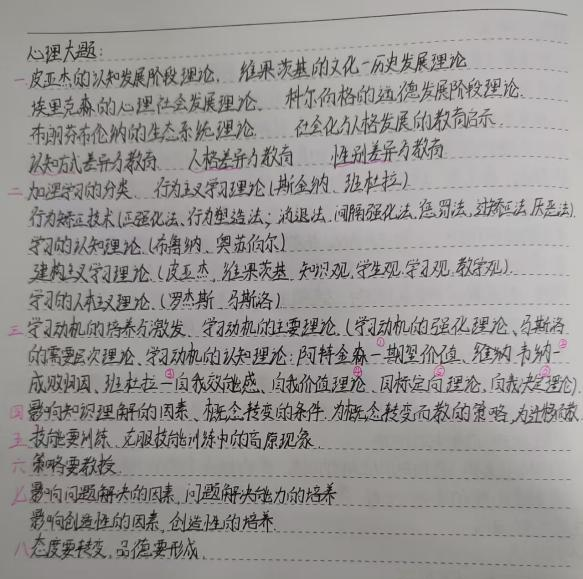 心理大题:
一 皮亚杰的认知发展阶段理论、 维果茨基的文化—历史发展理论
埃里克森的心理社会发展理论、 科尔伯格的道德发展阶段理论、
布朗芬布伦纳的生态系统理论、 社会化与人格发展的教育启示
认知方式差异与教育 人格差异与教育 性别差异与教育
二 加涅学习的分类、行为主义学习理论(斯金纳、班杜拉)
行为矫正技术(正强化法、行为塑造法; 消退法、间隔强化法、惩罚法、过矫正法、厌恶法)
学习的认知理论、(布鲁纳、奥苏伯尔)
建构主义学习理论、(皮亚杰、维果茨基、知识观、学生观、学习观、教学观)
学习的人本主义理论、(罗杰斯、马斯洛)
三 学习动机的培养与激发、学习动机的主要理论、(学习动机的强化理论、马斯洛
的需要层次理论、学习动机的认知理论:阿特金森—①期望价值、维纳 韦纳—②
成败归因、班杜拉—③自我效能感、自我价值理论④、目标定向理论⑤、自我决定理论⑥)
四 影响知识理解的因素、概念转变的条件、为概念转变而教的策略、为迁移而教
五 技能要训练、克服技能训练中的高原现象
六 策略要教授
七 影响问题解决的因素、问题解决能力的培养
影响创造性的因素、创造性的培养
八 态度要转变、品德要形成、